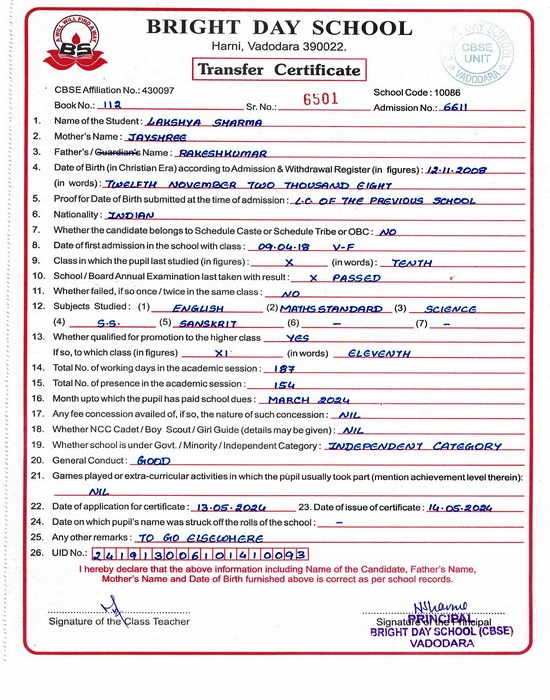 A WILL WILL FIND A WAY
BS
BRIGHT DAY SCHOOL
Harni, Vadodara 390022.
Transfer Certificate
DAY SCHOOL
CBSE
UNIT
VADODARA
CBSE Affiliation No.: 430097
School Code : 10086
Book No.: 112 Sr. No.: 6501 Admission No.: 6611
1. Name of the Student : LAKSHYA SHARMA
2. Mother's Name : JAYSHREE
3. Father's / Guardian's Name : RAKESHKUMAR
4. Date of Birth (in Christian Era) according to Admission & Withdrawal Register (in figures) : 12.11.2008
(in words) : TWELFTH NOVEMBER TWO THOUSAND EIGHT
5. Proof for Date of Birth submitted at the time of admission : L.C OF THE PREVIOUS SCHOOL
6. Nationality : INDIAN
7. Whether the candidate belongs to Schedule Caste or Schedule Tribe or OBC : NO
8. Date of first admission in the school with class : 09.04.18 V-F
9. Class in which the pupil last studied (in figures) : X (in words) : TENTH
10. School / Board Annual Examination last taken with result : X PASSED
11. Whether failed, if so once / twice in the same class : NO
12. Subjects Studied : (1) ENGLISH (2) MATHS STANDARD (3) SCIENCE
(4) S.S. (5) SANSKRIT (6) – (7) –
13. Whether qualified for promotion to the higher class YES
If so, to which class (in figures) XI (in words) ELEVENTH
14. Total No. of working days in the academic session : 187
15. Total No. of presence in the academic session : 154
16. Month upto which the pupil has paid school dues : MARCH 2024
17. Any fee concession availed of, if so, the nature of such concession : NIL
18. Whether NCC Cadet / Boy Scout / Girl Guide (details may be given) : NIL
19. Whether school is under Govt. / Minority / Independent Category : INDEPENDENT CATEGORY
20. General Conduct : GOOD
21. Games played or extra-curricular activities in which the pupil usually took part (mention achievement level therein):
NIL
22. Date of application for certificate : 13.05.2024 23. Date of issue of certificate : 14.05.2024
24. Date on which pupil's name was struck off the rolls of the school : –
25. Any other remarks : TO GO ELSEWHERE
26. UID No.: 241913006101410093
I hereby declare that the above information including Name of the Candidate, Father's Name,
Mother's Name and Date of Birth furnished above is correct as per school records.
Signature of the Class Teacher
Signature of the Principal
PRINCIPAL
BRIGHT DAY SCHOOL (CBSE)
VADODARA